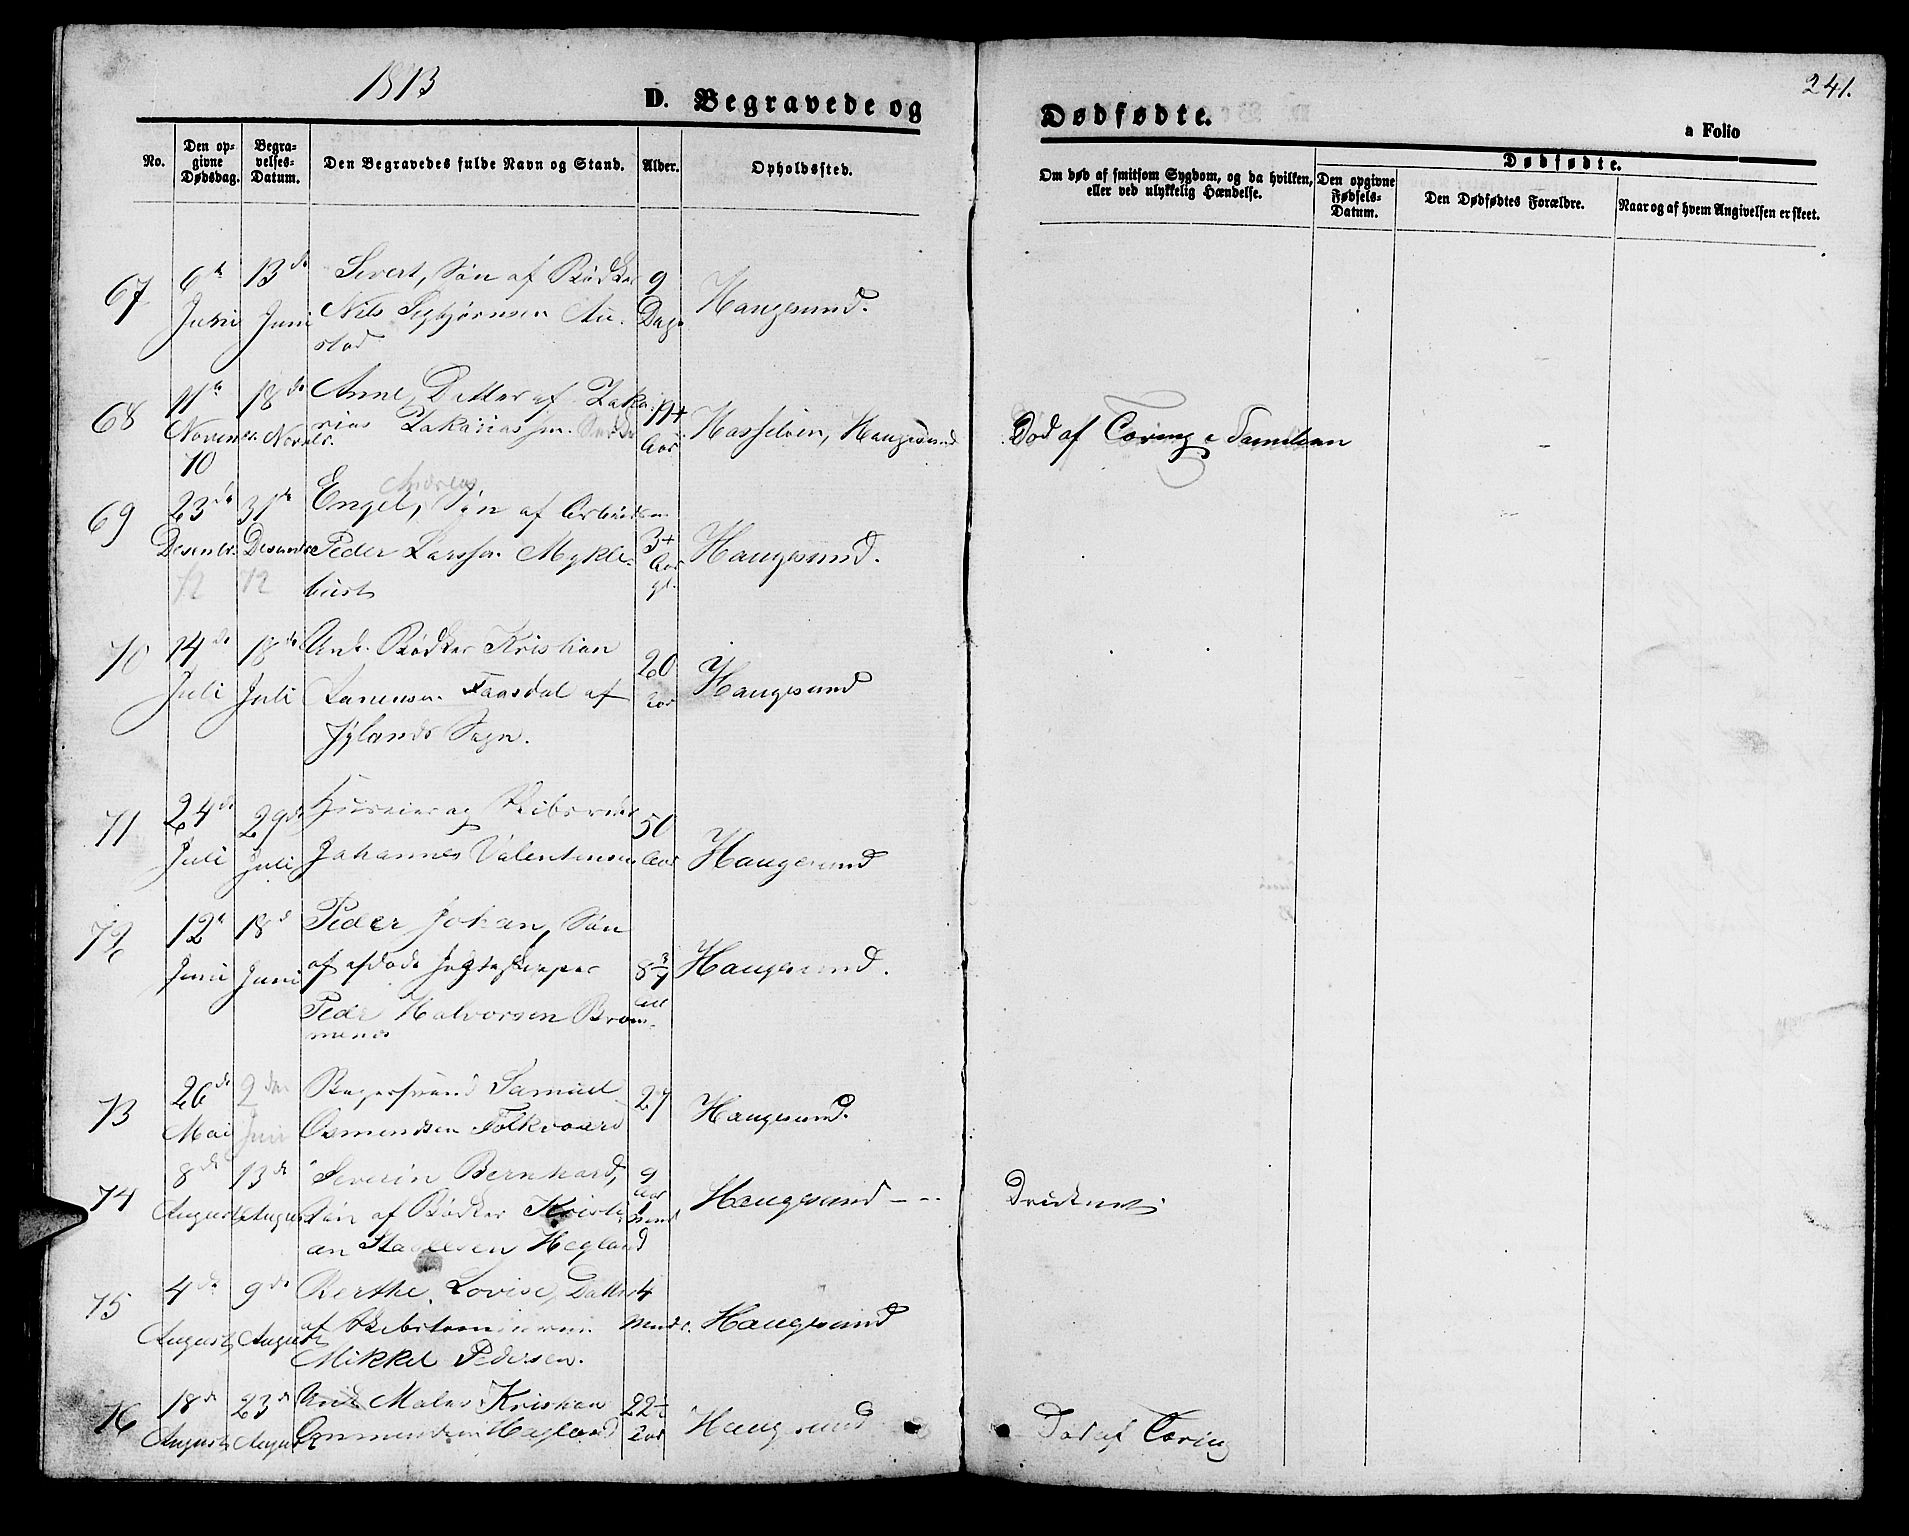 1873
D. Begravede og
Dødfødte.
241.
a Folio
No.
Den op-
givne
Dødsdag.
Begra-
velses-
Datum.
Den Begravedes fulde Navn og Stand.
Alder.
Opholdssted.
Om død af smitsom Sygdom, og da hvilken,
eller ved ulykkelig Hændelse.
Dødfødte.
Den opgivne
Fødsels-
Datum.
Den Dødfødtes Forældre.
Naar og af hvem Angivelsen er skeet.
67 6te 13de Sivert, Søn af Bødker 9
Juni Juni Nils Au- Dage Haugesund.
stad
68 11te 18de Anne, Datter af Zaka-
Novembr. Novbr. rias Zakariassen Aar Hasseløen, Haugesund Død af Tæring
10
Andreas
69 23de 31te Engel, Søn af
Desembr. Desembr. Peder Larssen Mykle- Aar Haugesund.
72 72 bust gl.
70 14de 18de Unk. Bødker Kristian 20
Juli Juli Faasdal af Aar Haugesund
Jylands Sogn.
71 24de 29de Huseier og 50
Juli Juli Johannes Valentinsen Aar Haugesund
72 12te 18de Peder Johan, Søn
Juni Juni af afdøde Jagteskipper 8 Haugesund.
Peder Halvorsen Brom-
menes
73 26de 2den Samuel 27
Mai Juni Osmundsen Folkvoord Haugesund.
74 8de 13de Severin Bernhard, 9 Aar
August August Søn af Bødker Kristi- 1 Mnd Haugesund Druknet
an Staalesen Hegland
75 4de 9de Berthe Lovise, Datter 4
August August af Skibstømmerm. Mndr. Haugesund
Mikkel Pedersen.
76 18de 23de Unk Maler Kristian 22½
August August Hegland Aar Haugesund Død af Tæring